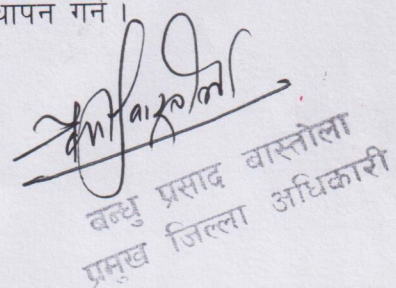 थापन गर्ने।
बन्धु प्रसाद बास्तोला
प्रमुख जिल्ला अधिकारी